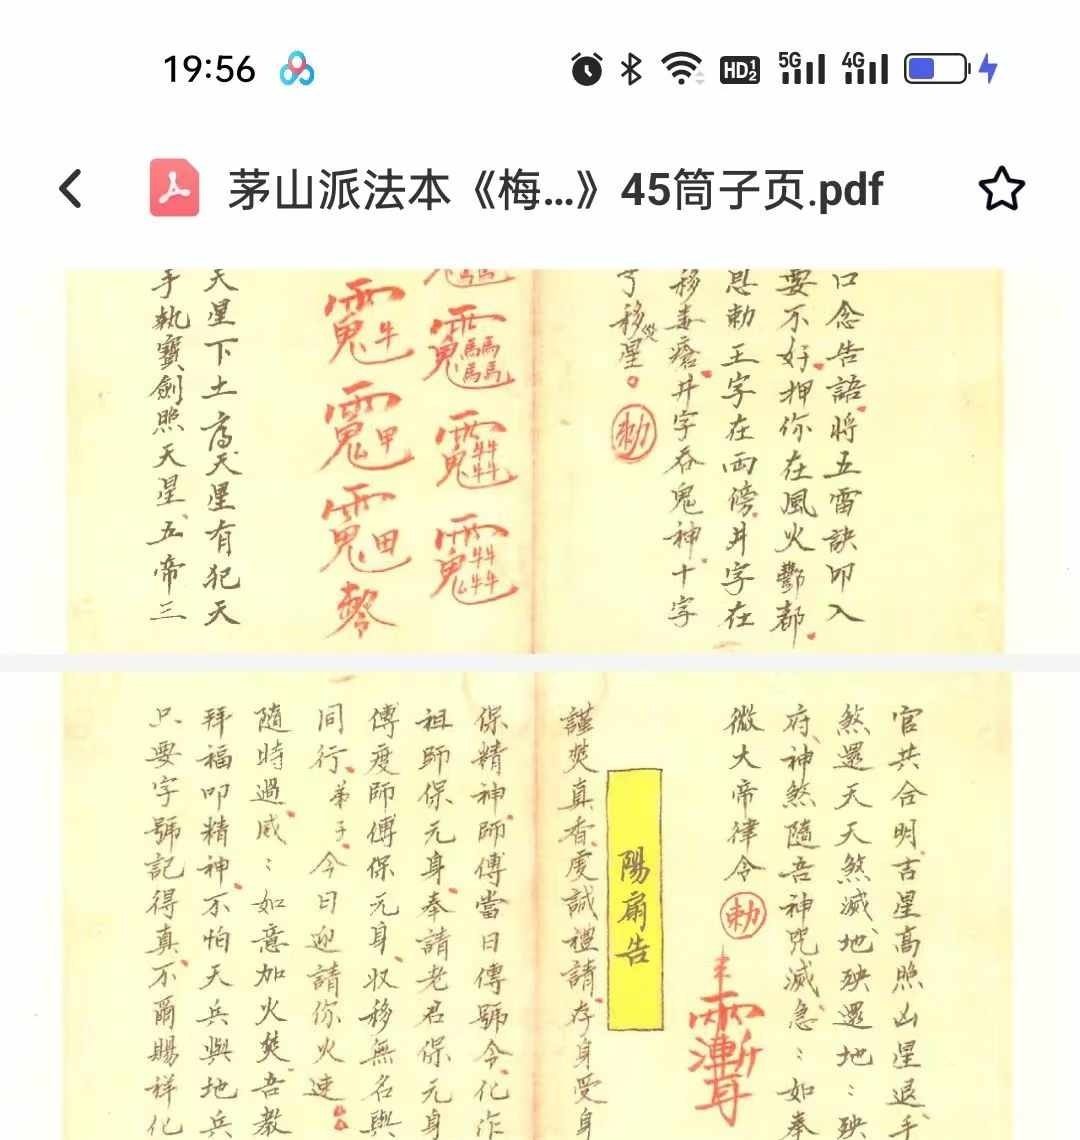 19:56
HD 1 2
5G
4G
茅山派法本《梅...》45筒子页.pdf
口念告語將五雷訣叩入
要不好押你在風火酆都
息勅王字在両傍井字在
移毒瘡井字吞鬼神十字
移星
勅
天星下土
天星有犯天
手執寶劍照天星五帝三
官共合明吉星高照凶星退
煞還天天煞滅地殃還地：殃
府神煞隨吾神咒滅急：如奉
微大帝律令
勅
陽扇告
謹焚真香虔誠禮請存身受身
保精神師傅當日傳號令化作
祖師保元身奉請老君保元身
傅度師傅保元身收移無名與
同行弟子今日迎請你火速
隨時過感：如意加火焚吾教
拜福叩精神不怕天兵與地兵
只要字號記得真不爾賜祥化